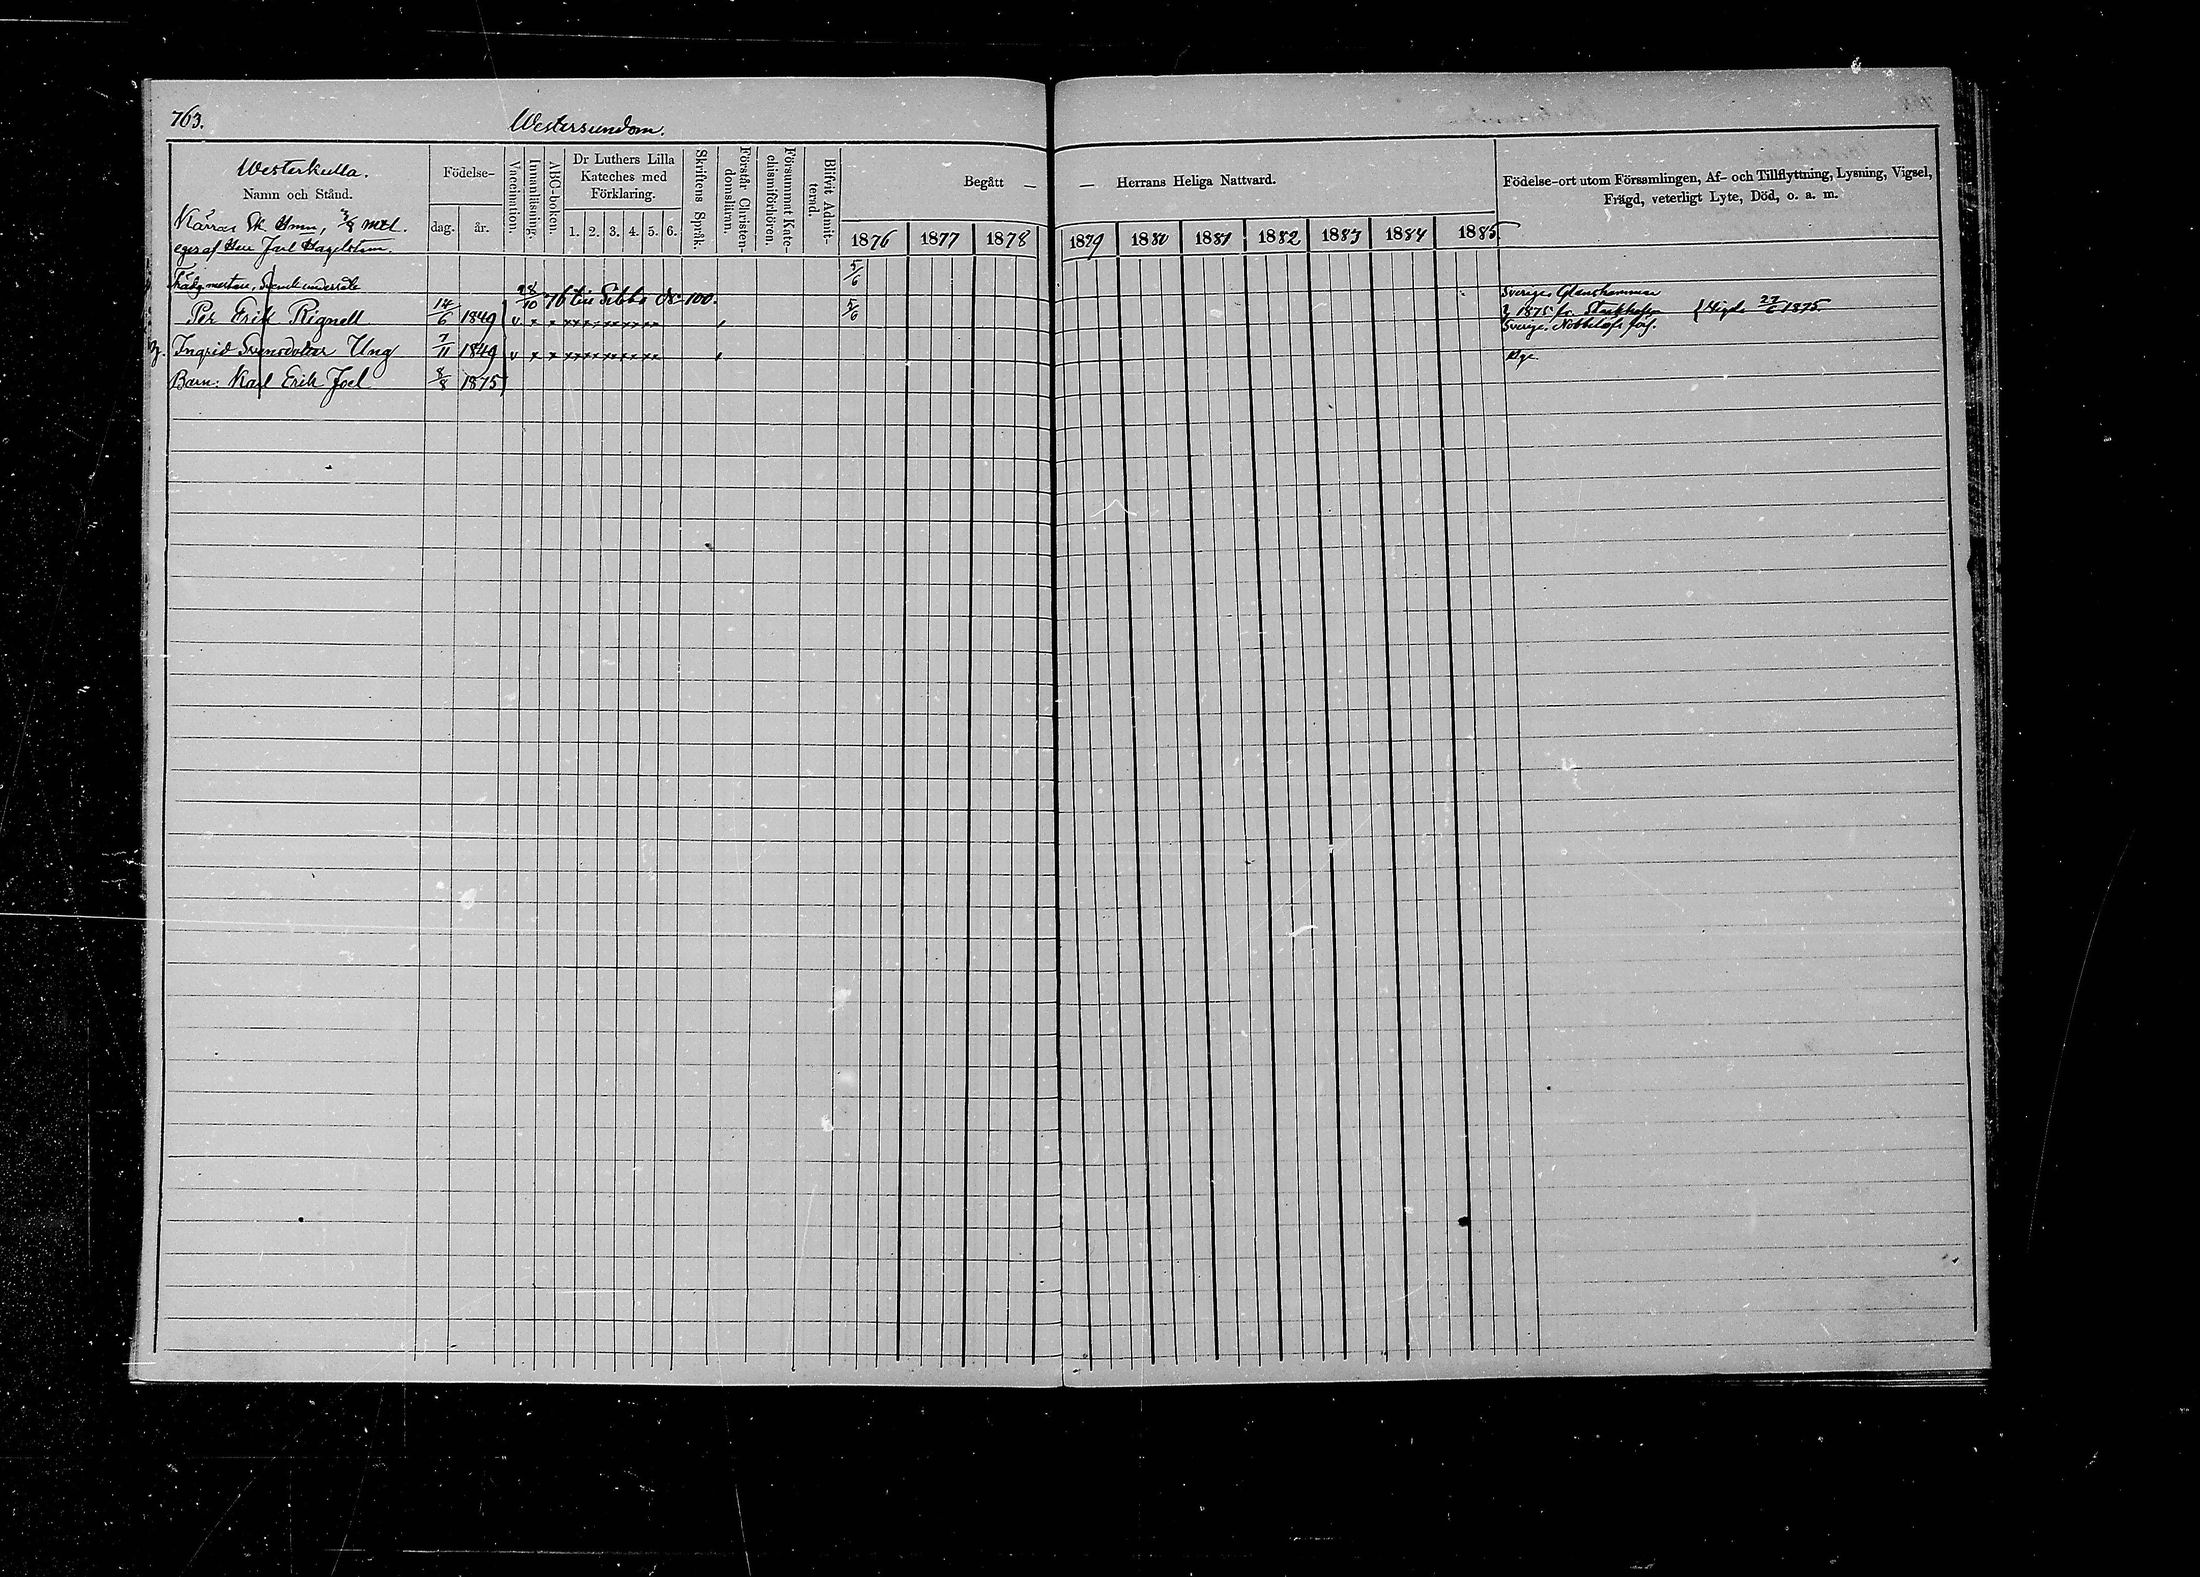 763.
Westersundom.
Westerkulla.
Namn och Stånd.
Födelse-
dag.
år.
Vaccination.
Innanläsning.
ABC-boken.
Dr Luthers Lilla
Kateches med
Förklaring.
1. 2. 3. 4. 5. 6.
Skriftens Språk.
Förstår Christen-
domslitum.
Försummat Kate-
chismiförhören.
Blifvit Admit-
terad.
Begått —
— Herrans Heliga Nattvard.
1876 1877 1878 1879 1880 1881 1882 1883 1884 1885
Födelse-ort utom Församlingen, Af- och Tillflyttning, Lysning, Vigsel,
Frägd, veterligt Lyte, Död, o. a. m.
Kärras Sk Hmn, 3/8 mtl.
eges af Herr Jarl Hagelstam.
5/6
Svensk undersåte
28/10 76 till Sibbo No 100.
Per Erik Rignell 14/6 1849 v. x x 5/6
Sverige, Glanshammar
1875 fr. Stockholm } Vigde 27/6 1875.
Sverige,
Ingrid Svensdotter Ung 7/11 1849 v x x
Barn: Karl Erik Joel 8/8 1875